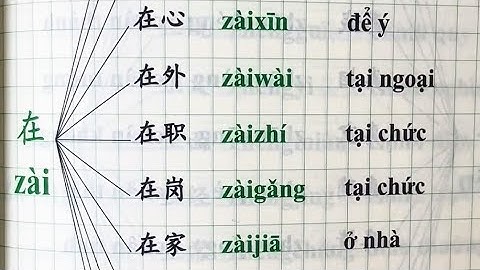 在心 zàixīn để ý
在外 zàiwài tại ngoại
在 zài
在职 zàizhí tại chức
在岗 zàigǎng tại chức
在家 zàijiā ở nhà